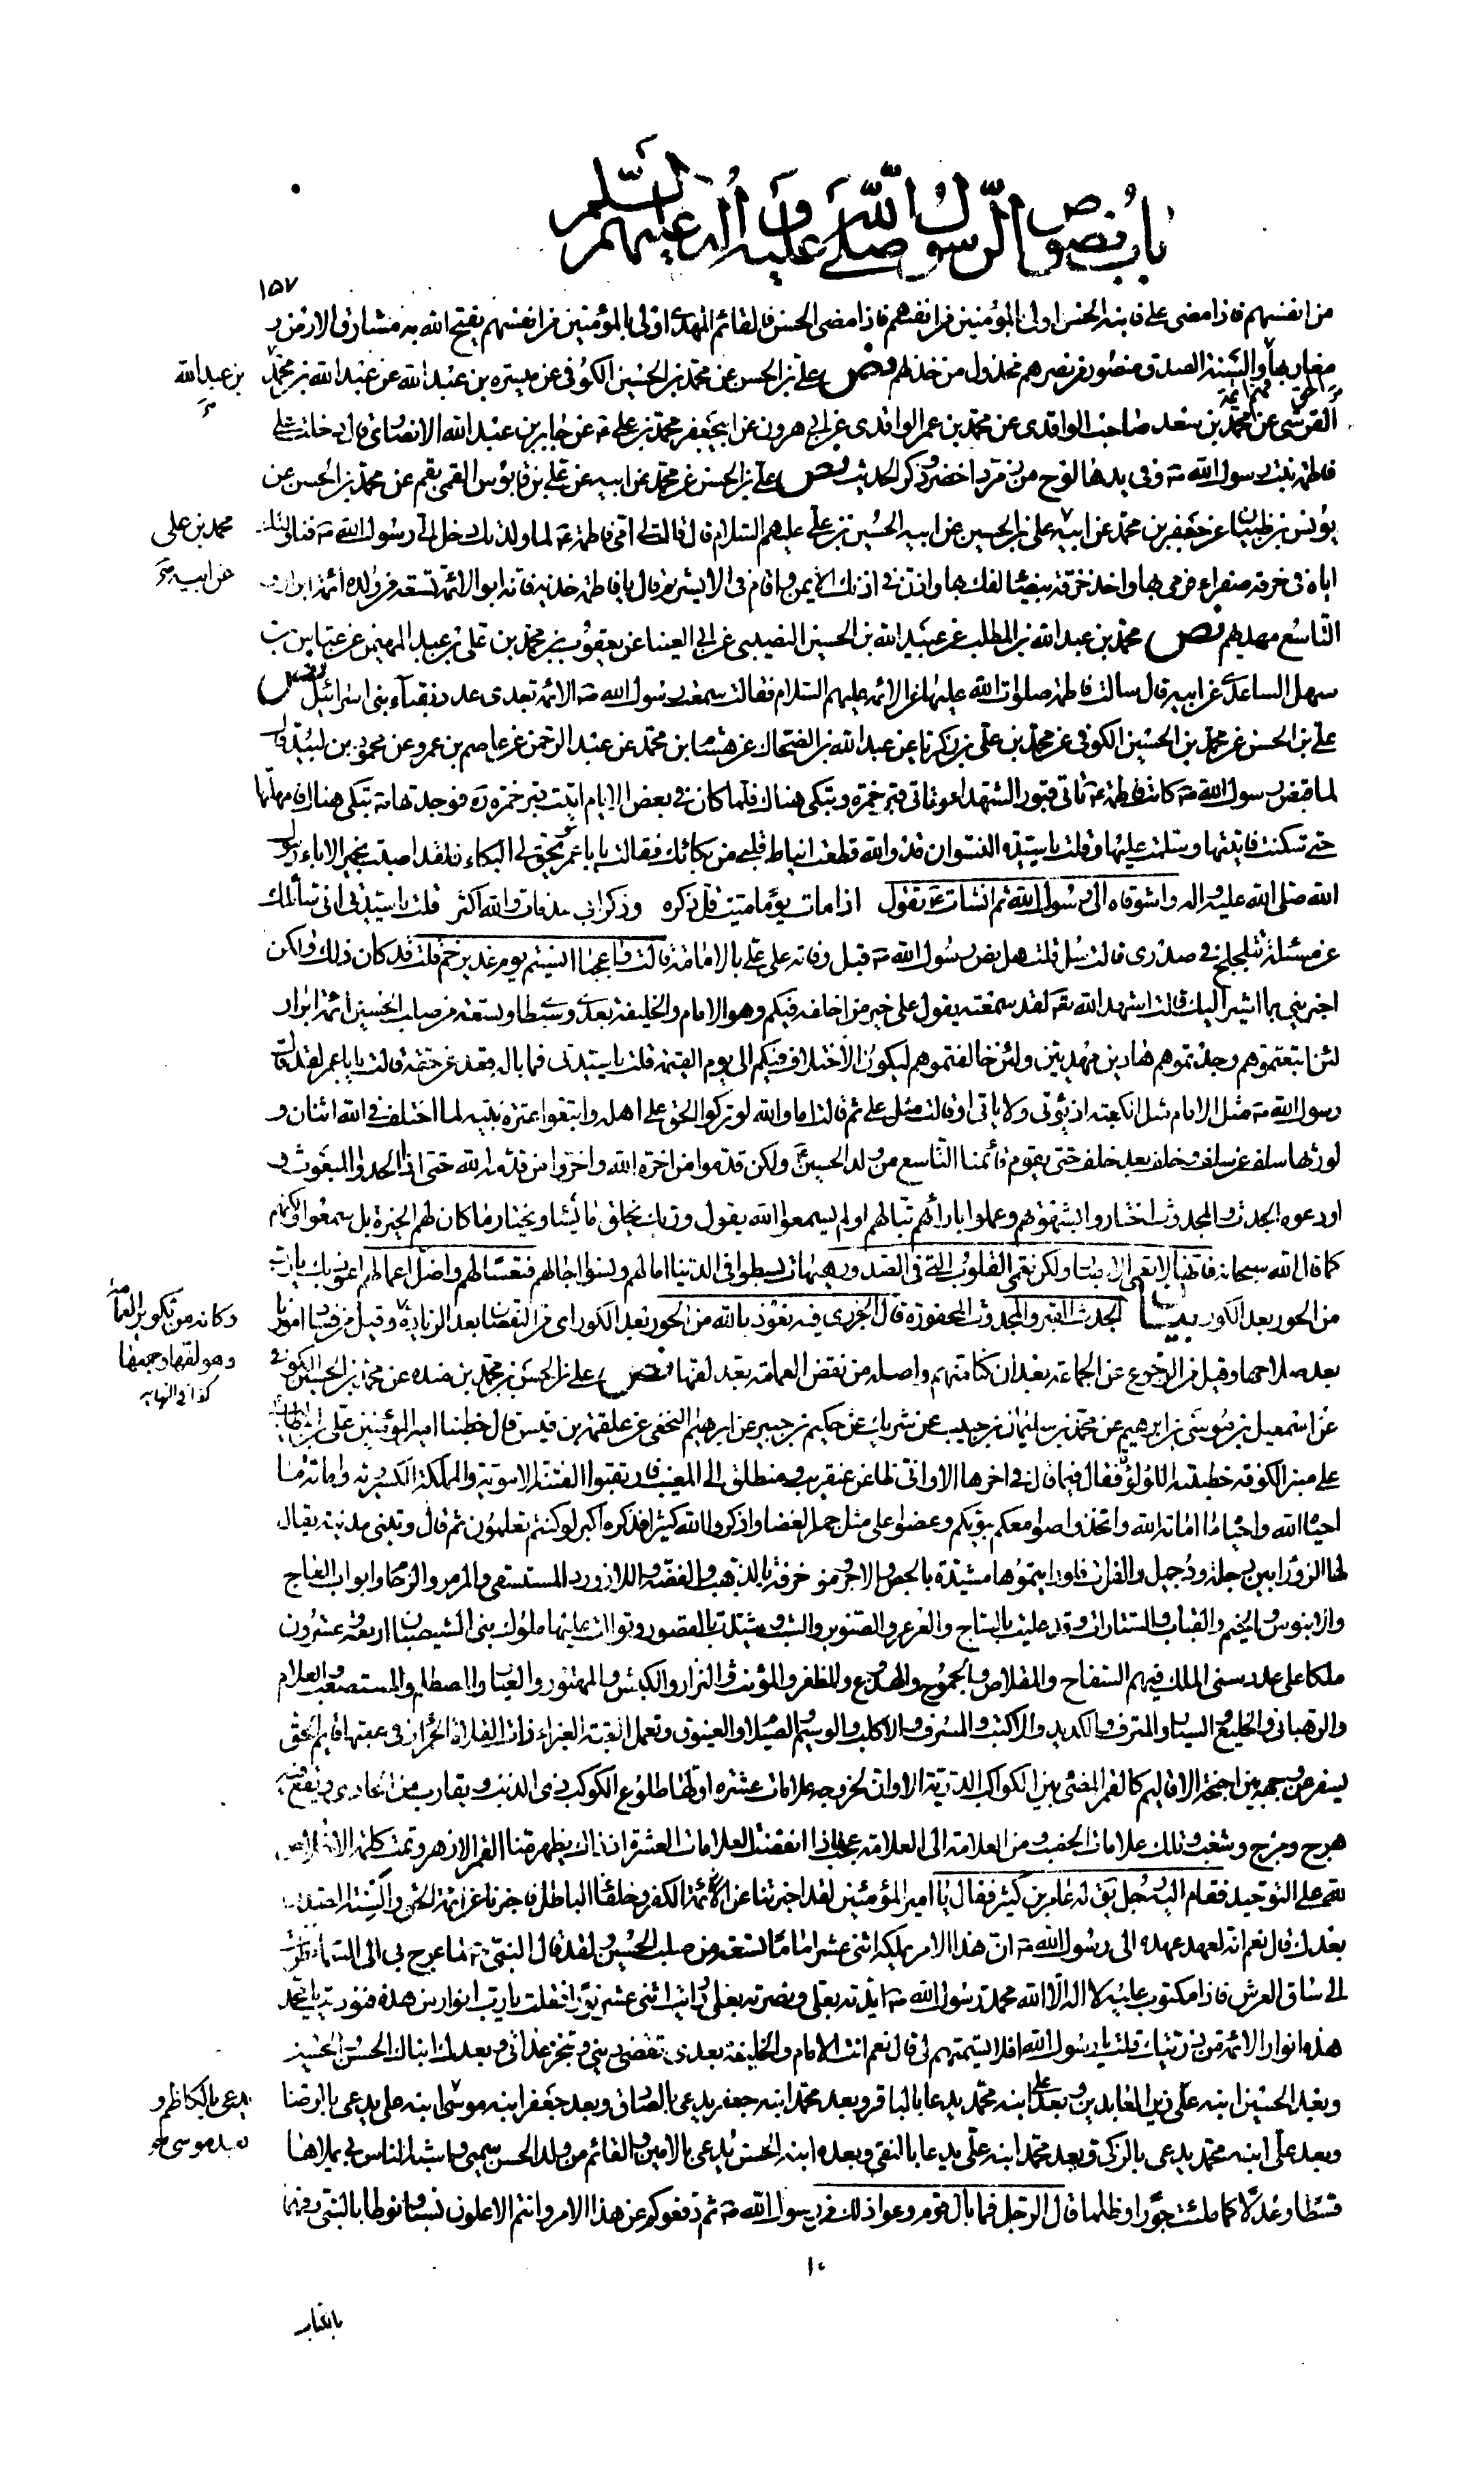 باب نصوص الرسول صلى الله عليه وآله عليهم السلم
١٥٧
من انفسهم فاذا مضى على فابنه الحسن اولى بالمؤمنين من انفسهم فاذا مضى الحسن فالقائم المهدى اولى بالمؤمنين من انفسهم يفتح الله به مشارق الارض و
مغاربها وهم ائمة الحق والسنة الصدق منصور من نصرهم مخذول من خذلهم نص على بن الحسن عن محمد بن الحسين الكوفى عن ميسره بن عبد الله عن عبد الله بن محمد
بن عبد الله
القرشى عن محمد بن سعد صاحب الواقدى عن محمد بن عمر الواقدى عن ابى هرون عن ابى جعفر محمد بن على ع عن جابر بن عبد الله الانصارى قال دخلت على
فاطمه بنت رسول الله ص وفى يدها لوح من زمرد اخضر وذكر الحديث نص على بن الحسن عن محمد عن ابيه عن على بن قابوس القمى بقم عن محمد بن الحسن عن
يونس بن ظبيان عن جعفر بن محمد عن ابيه على بن الحسين عن ابيه الحسين بن على عليهم السلام قال قالت لى امى فاطمه ع لما ولدتك دخل الى رسول الله ص فناولتك
محمد بن على
عن ابيه
اياه فى خرقه صفراء فرمى بها واخذ خرقه بيضاء لفك بها واذن فى اذنك الايمن واقام فى الايسر ثم قال يا فاطمه خذيه فانه ابو الائمه تسعه من ولده ائمه ابرار و
التاسع مهديهم نص محمد بن عبد الله بن المطلب عن عبيد الله بن الحسين النصيبى عن ابى العينا عن يعقوب بن محمد بن على بن عبد المهيمن عن عباس بن
سهل الساعدى عن ابيه قال سالت فاطمه صلوات الله عليها عن الائمه عليهم السلام فقالت سمعت رسول الله ص الائمه بعدى عدد نقباء بنى اسرائيل نص
على بن الحسن عن محمد بن الحسين الكوفى عن محمد بن على بن زكريا عن عبد الله بن الضحاك عن هشام بن محمد عن عبد الرحمن عن عاصم بن عمرو عن محمود بن لبيد قال
لما قبض رسول الله ص كانت فاطمه ع تاتى قبور الشهداء وتاتى قبر حمزه وتبكى هناك فلما كان فى بعض الايام اتيت قبر حمزه ره فوجدتها ص تبكى هناك فامهلتها
حتى سكنت فاتيتها وسلمت عليها وقلت يا سيدة النسوان قد والله قطعت انياط قلبى من بكائك فقالت يا با عمر يحق لى البكاء فلقد اصبت بخير الاباء رسول
الله صلى الله عليه واله واشوقاه الى رسول الله ثم انشات ع تقول اذا مات يوما ميت قل ذكره وذكر ابى مذ مات والله اكثر قلت يا سيدتى انى سائلك
عن مسئله تتلجلج فى صدرى قالت سل قلت هل نص رسول الله ص قبل وفاته على على بالامامة قالت واعجبا انسيتم يوم غدير خم قلت قد كان ذلك ولكن
اخبرينى بما اشير اليك قالت اشهد الله تعالى لقد سمعته يقول على خير من اخلفه فيكم وهو الامام والخليفة بعدى وسبطاى وتسعه من صلب الحسين ائمه ابرار
لئن اتبعتموهم وجدتموهم هادين مهديين ولئن خالفتموهم ليكون الاختلاف فيكم الى يوم القيمه قلت يا سيدتى فما باله قعد عن حقه قالت يا با عمر لقد قال
رسول الله ص مثل الامام مثل الكعبه اذ تؤتى ولا ياتى او قالت مثل على ثم قالت اما والله لو تركوا الحق على اهله واتبعوا عترة نبيه لما اختلف فى الله اثنان و
لورثها سلف عن سلف وخلف بعد خلف حتى يقوم قائمنا التاسع من ولد الحسين ع ولكن قدموا من اخره الله واخروا من قدمه الله حتى اذا الحدوا المبعوث و
اودعوه الجدث المجدوث اختاروا بشهوتهم وعملوا بارائهم تبا لهم او لم يسمعوا الله يقول وربك يخلق ما يشاء ويختار ما كان لهم الخيرة بل سمعوا ولكنهم
كما قال الله سبحانه فانها لا تعمى الابصار ولكن تعمى القلوب التى فى الصدور هيهات بسطوا فى الدنيا امالهم ونسوا اجالهم فتعسا لهم واضل اعمالهم اعوذ بك يا رب
من الحور بعد الكور بيان الجدث القبر والمجدوث المحفورة قال الجزرى فيه نعوذ بالله من الحور بعد الكور اى من النقصان بعد الزيادة وقيل من فساد امورنا
وكانه من تكوير العمامه
وهو لفها وجمعها
كذا فى النهايه
بعد صلاحها وقيل من الرجوع عن الجماعه بعد ان كنا منهم واصله من نقض العمامه بعد لفها نص على بن الحسن بن محمد بن منده عن محمد بن الحسين الكوفى
عن اسمعيل بن موسى بن ابرهيم عن محمد بن سليمان بن حبيب عن شريك عن حكيم بن جبير عن ابرهيم النخعى عن علقمه بن قيس قال خطبنا امير المؤمنين على بن ابيطالب
على منبر الكوفه خطبته اللؤلؤة فقال فيما قال فى اخرها الا وانى ظاعن عن قريب ومنطلق الى المغيب فارتقبوا الفتنه الاموية والمملكة الكسرويه واماته ما
احياه الله واحياء ما اماته الله واتخذوا صوامعكم بيوتكم وعضوا على مثل جمر الغضا واذكروا الله كثيرا فذكره اكبر لو كنتم تعلمون ثم قال وتبنى مدينه يقال
لها الزورا بين دجله ودجيل والفرات فلو رايتموها مشيدة بالجص والاجر مزخرفة بالذهب والفضه واللازورد المستسقى والمرمر والرخام وابواب العاج
والابنوس والخيم والقباب والستارات وقد عليت بالساج والعرعر والصنوبر والشب وشيدت بالقصور وتوالت عليها ملوك بنى الشيصبان اربعه وعشرون
ملكا على عدد سنى الملك فيهم السفاح والمقلاص والجموح والهدوع والمظفر والمؤنث والنزار والكبش والمهتور والعيار والمصطلم والمستصعب والعلام
والرهبانى والخليع والسيار والمترف والكديد والاكتب والمسرف والاكلب والوسيم والصيلام والعينوق وتعمل القبة الغبراء ذات الفلاة الحمراء فى عقبها قايم الحق
يسفر عن وجهه بين اجنحة الاقاليم كالقمر المضئ بين الكواكب الدرية الا وان لخروجه علامات عشره اولها طلوع الكوكب ذى الذنب ويقارب من الحادى ويقع فيه
هرج ومرج وشغب وتلك علامات الخصب ومن العلامه الى العلامه عجب فاذا انقضت العلامات العشرة اذ ذاك يظهر منا القمر الازهر وتمت كلمه الاخلاص
لله على التوحيد فقام اليه رجل يق له عامر بن كثير فقال يا امير المؤمنين لقد اخبرتنا عن ائمة الكفر وخلفاء الباطل فاخبرنا عن ائمة الحق والسنة الصدق
بعدك قال نعم انه لعهد عهده الى رسول الله ص ان هذا الامر يملكه اثنى عشر اماما تسعه من صلب الحسين ولقد قال النبى ص لما عرج بى الى السماء نظرت
الى ساق العرش فاذا مكتوب عليه لا اله الا الله محمد رسول الله ص ايدته بعلى ونصرته بعلى ورايت اثنى عشر نورا فقلت يا رب انوار من هذه فنوديت يا محمد
هذه انوار الائمه من ذريتك قلت يا رسول الله افلا تسميهم لى قال نعم انت الامام والخليفه بعدى تقضى دينى وتنجز عداتى وبعدك ابناك الحسن والحسين
وبعد الحسين ابنه على زين العابدين وبعد على ابنه محمد يدعا بالباقر وبعد محمد ابنه جعفر يدعى بالصادق وبعد جعفر ابنه موسى ابنه على يدعى بالرضا
يدعى بالكاظم و
بعد موسى
وبعد على ابنه محمد يدعى بالزكى وبعد محمد ابنه على يدعا بالنقى وبعده ابنه الحسن يدعى بالامين والقائم من ولد الحسن سميى واشبه الناس بى يملاها
قسطا وعدلا كما ملئت جورا وظلما قال الرجل فما بال قوم وعوا ذلك من رسول الله ص ثم دفعوكم عن هذا الامر وانتم الاعلون نسبا ونوطا بالنبى وفهما
١٠
بالكتاب